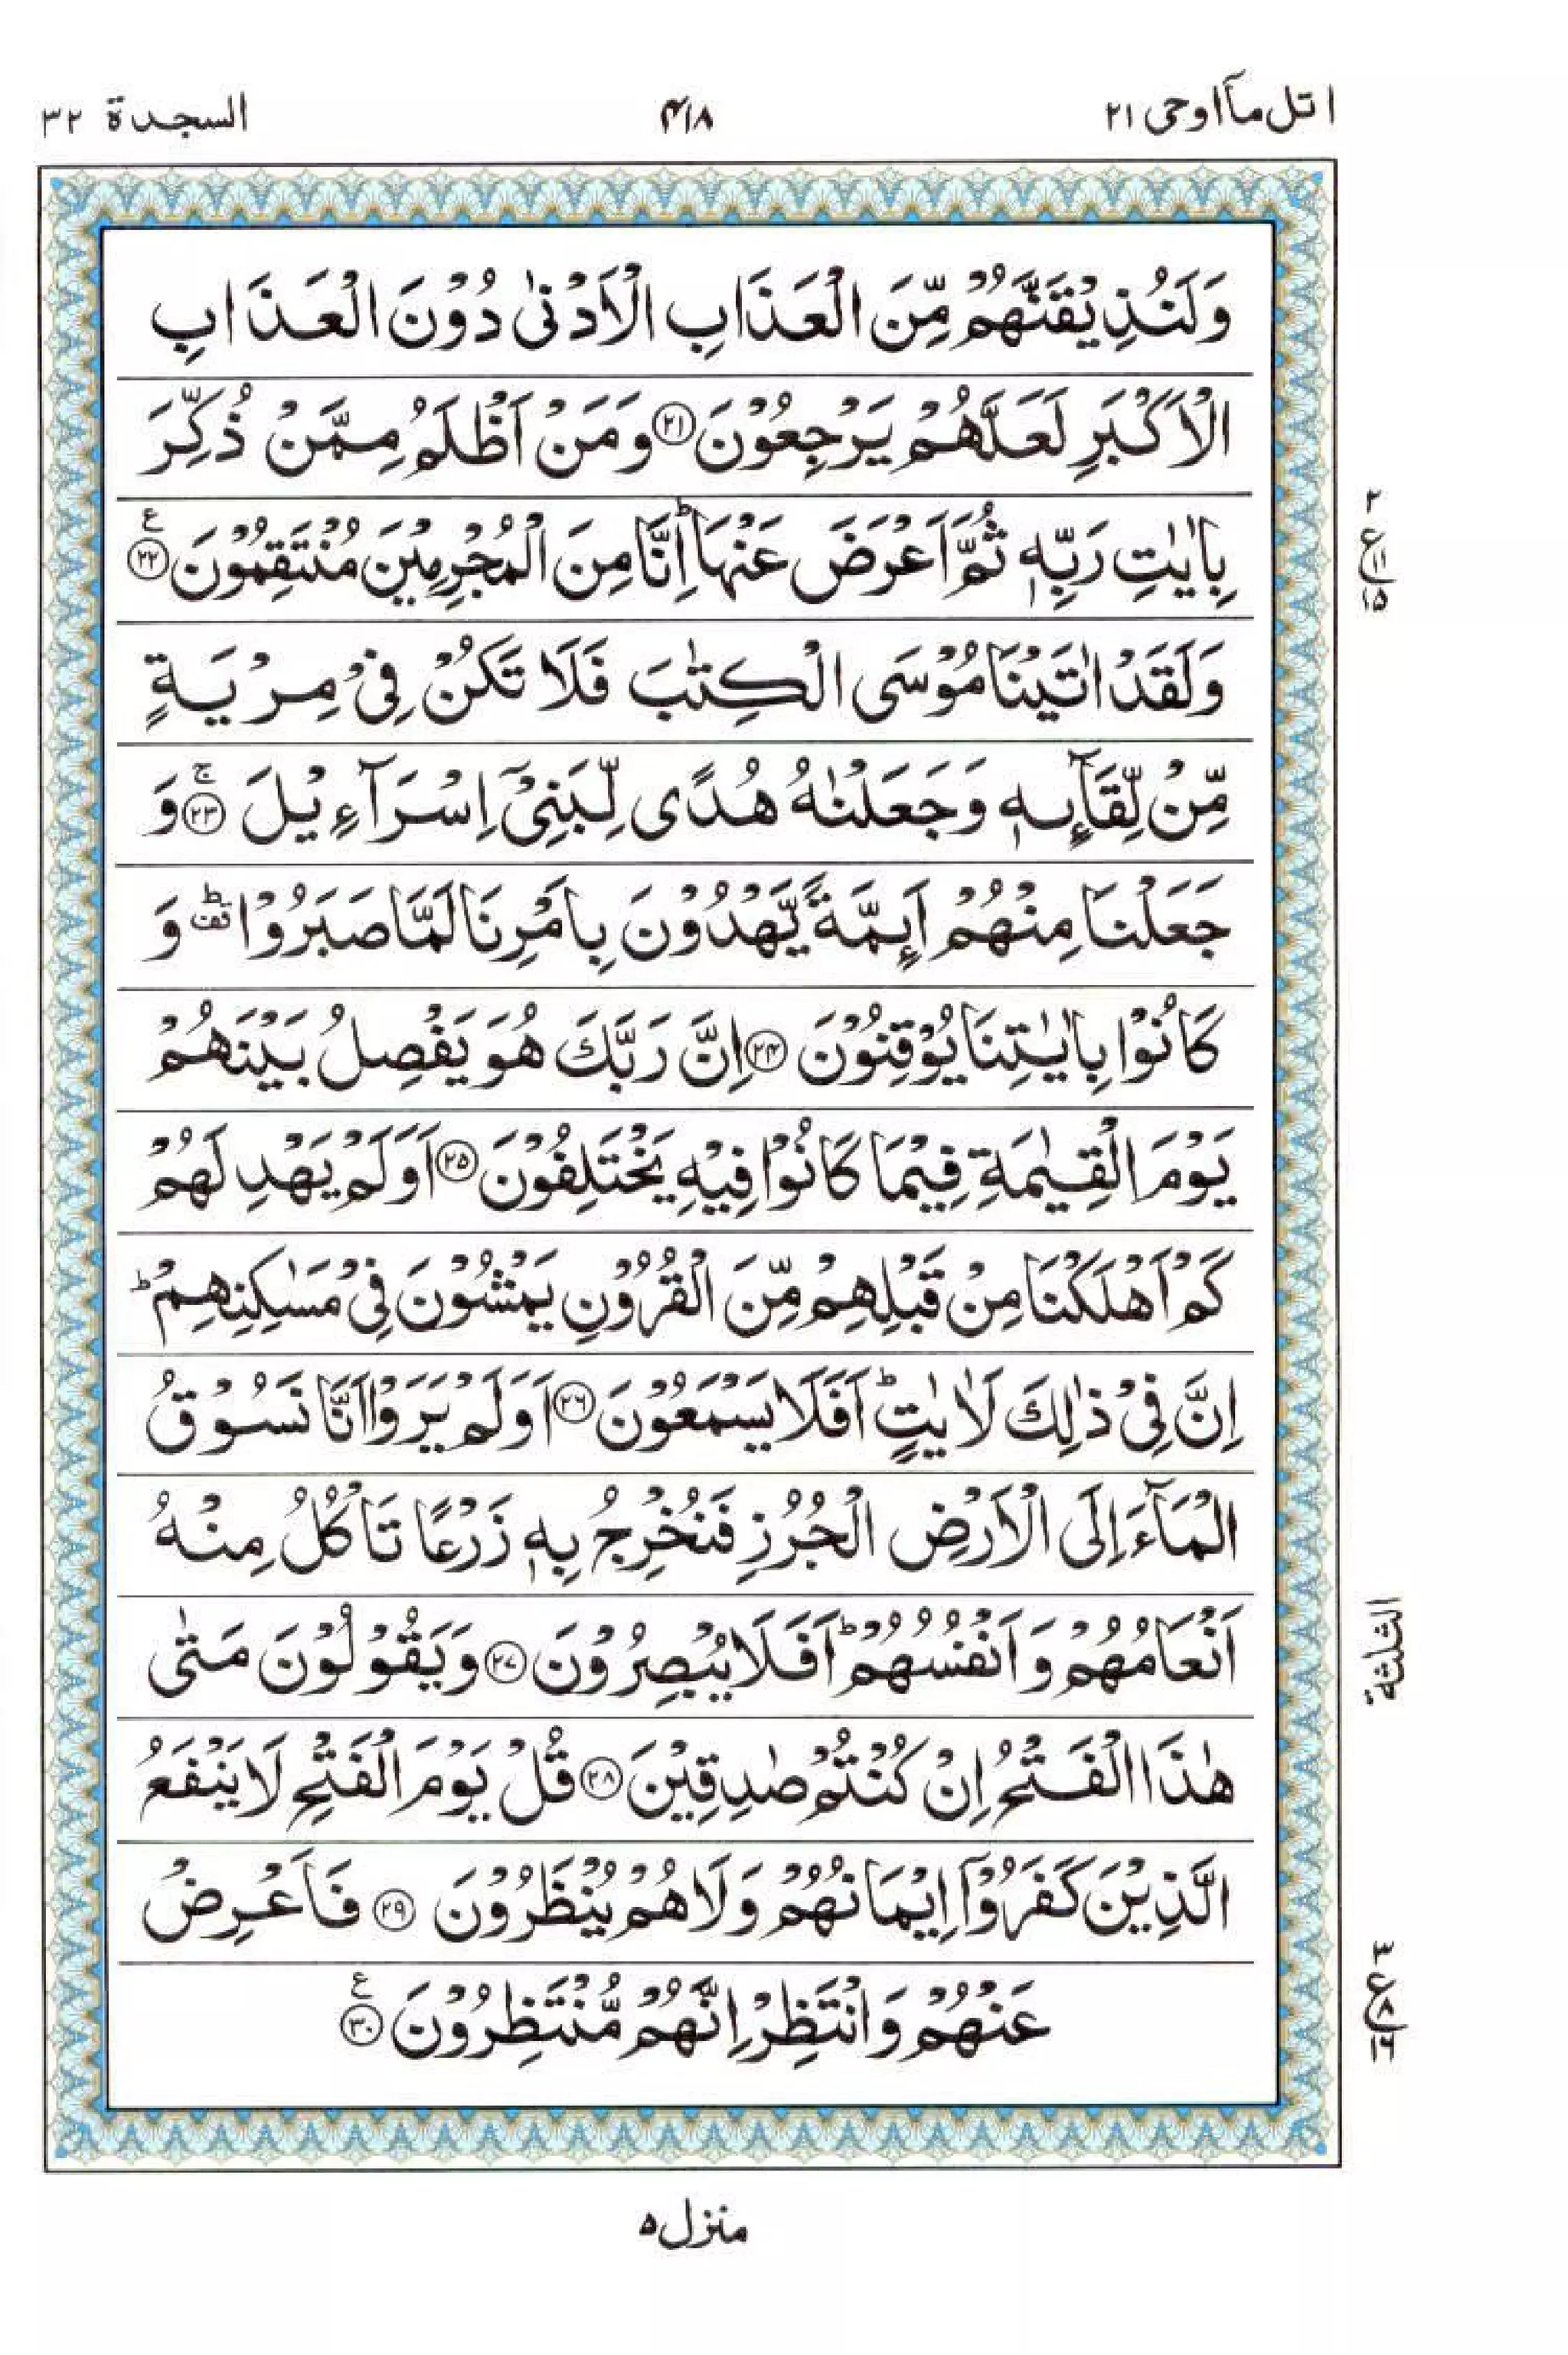 اتل مآ اوحی ۲۱
۴۱۸
السجدة ۳۲
وَلَنُذِيْقَنَّهُمْ مِّنَ الْعَذَابِ الْاَدْنٰى دُوْنَ الْعَذَابِ
الْاَكْبَرِ لَعَلَّهُمْ يَرْجِعُوْنَ ۝۲۱ وَمَنْ اَظْلَمُ مِمَّنْ ذُكِّرَ
بِاٰيٰتِ رَبِّهٖ ثُمَّ اَعْرَضَ عَنْهَا ؕ اِنَّا مِنَ الْمُجْرِمِيْنَ مُنْتَقِمُوْنَ ۝۲۲ ع
وَلَقَدْ اٰتَيْنَا مُوْسَى الْكِتٰبَ فَلَا تَكُنْ فِيْ مِرْيَةٍ
مِّنْ لِّقَآئِهٖ وَجَعَلْنٰهُ هُدًى لِّبَنِيْۤ اِسْرَآءِيْلَ ۝۲۳ ۚ وَ
جَعَلْنَا مِنْهُمْ اَئِمَّةً يَّهْدُوْنَ بِاَمْرِنَا لَمَّا صَبَرُوْا ؕ قف وَ
كَانُوْا بِاٰيٰتِنَا يُوْقِنُوْنَ ۝۲۴ اِنَّ رَبَّكَ هُوَ يَفْصِلُ بَيْنَهُمْ
يَوْمَ الْقِيٰمَةِ فِيْمَا كَانُوْا فِيْهِ يَخْتَلِفُوْنَ ۝۲۵ اَوَلَمْ يَهْدِ لَهُمْ
كَمْ اَهْلَكْنَا مِنْ قَبْلِهِمْ مِّنَ الْقُرُوْنِ يَمْشُوْنَ فِيْ مَسٰكِنِهِمْ ؕ
اِنَّ فِيْ ذٰلِكَ لَاٰيٰتٍ ؕ اَفَلَا يَسْمَعُوْنَ ۝۲۶ اَوَلَمْ يَرَوْا اَنَّا نَسُوْقُ
الْمَآءَ اِلَى الْاَرْضِ الْجُرُزِ فَنُخْرِجُ بِهٖ زَرْعًا تَاْكُلُ مِنْهُ
اَنْعَامُهُمْ وَاَنْفُسُهُمْ ؕ اَفَلَا يُبْصِرُوْنَ ۝۲۷ وَيَقُوْلُوْنَ مَتٰى
هٰذَا الْفَتْحُ اِنْ كُنْتُمْ صٰدِقِيْنَ ۝۲۸ قُلْ يَوْمَ الْفَتْحِ لَا يَنْفَعُ
الَّذِيْنَ كَفَرُوْۤا اِيْمَانُهُمْ وَلَا هُمْ يُنْظَرُوْنَ ۝۲۹ فَاَعْرِضْ
عَنْهُمْ وَانْتَظِرْ اِنَّهُمْ مُّنْتَظِرُوْنَ ۝۳۰ ع
۲
ع ۱۱
۱۵
الثلثة
۳
ع ۸
منزل ۵